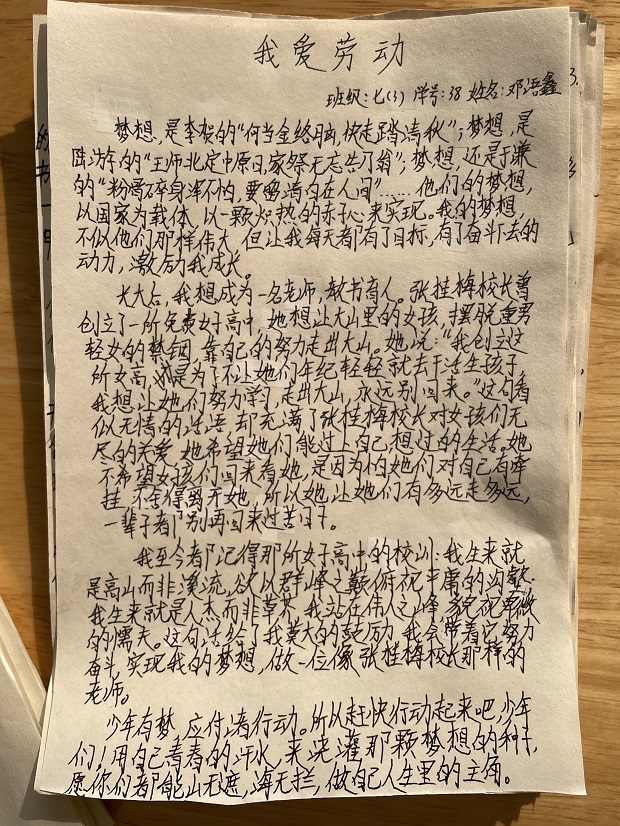 我爱劳动
班级:七(3) 学号:38 姓名:邓浯鑫
梦想,是李贺的“何当金络脑,快走踏清秋”;梦想,是
陆游的“王师北定中原日,家祭无忘告乃翁”;梦想,还是于谦
的“粉骨碎身浑不怕,要留清白在人间”……他们的梦想,
以国家为载体,以一颗炽热的赤子心来实现。我的梦想,
不似他们那样伟大,但让我每天都有了目标,有了奋斗去的
动力,激励我成长。
长大后,我想成为一名老师,教书育人。张桂梅校长曾
创立了一所免费女子高中,她想让大山里的女孩,摆脱重男
轻女的禁锢,靠自己的努力走出大山。她说:“我创立这
所女高,就是为了不让她们年纪轻轻就去干活生孩子,
我想让她们努力学习,走出大山,永远别回来。”这句看
似无情的话语,却充满了张桂梅校长对女孩们无
尽的关爱,她希望她们能过上自己想过的生活。她
不希望女孩们回来看她,是因为怕她们对自己有牵
挂,不舍得离开她,所以她让她们有多远走多远,
一辈子都别再回来过苦日子。
我至今都记得那所女子高中的校训:我生来就
是高山而非溪流,欲以群峰之巅俯视平庸的沟壑.
我生来就是人杰而非草芥,我站在伟人之峰,藐视卑微
的懦夫。这句话给了我莫大的鼓励,我会带着它努力
奋斗,实现我的梦想,做一位像张桂梅校长那样的
老师。
少年有梦,应付诸行动。所以赶快行动起来吧,少年
们!用自己青春的汗水,来浇灌那颗梦想的种子,
愿你们都能山无遮,海无拦,做自己人生里的主角。